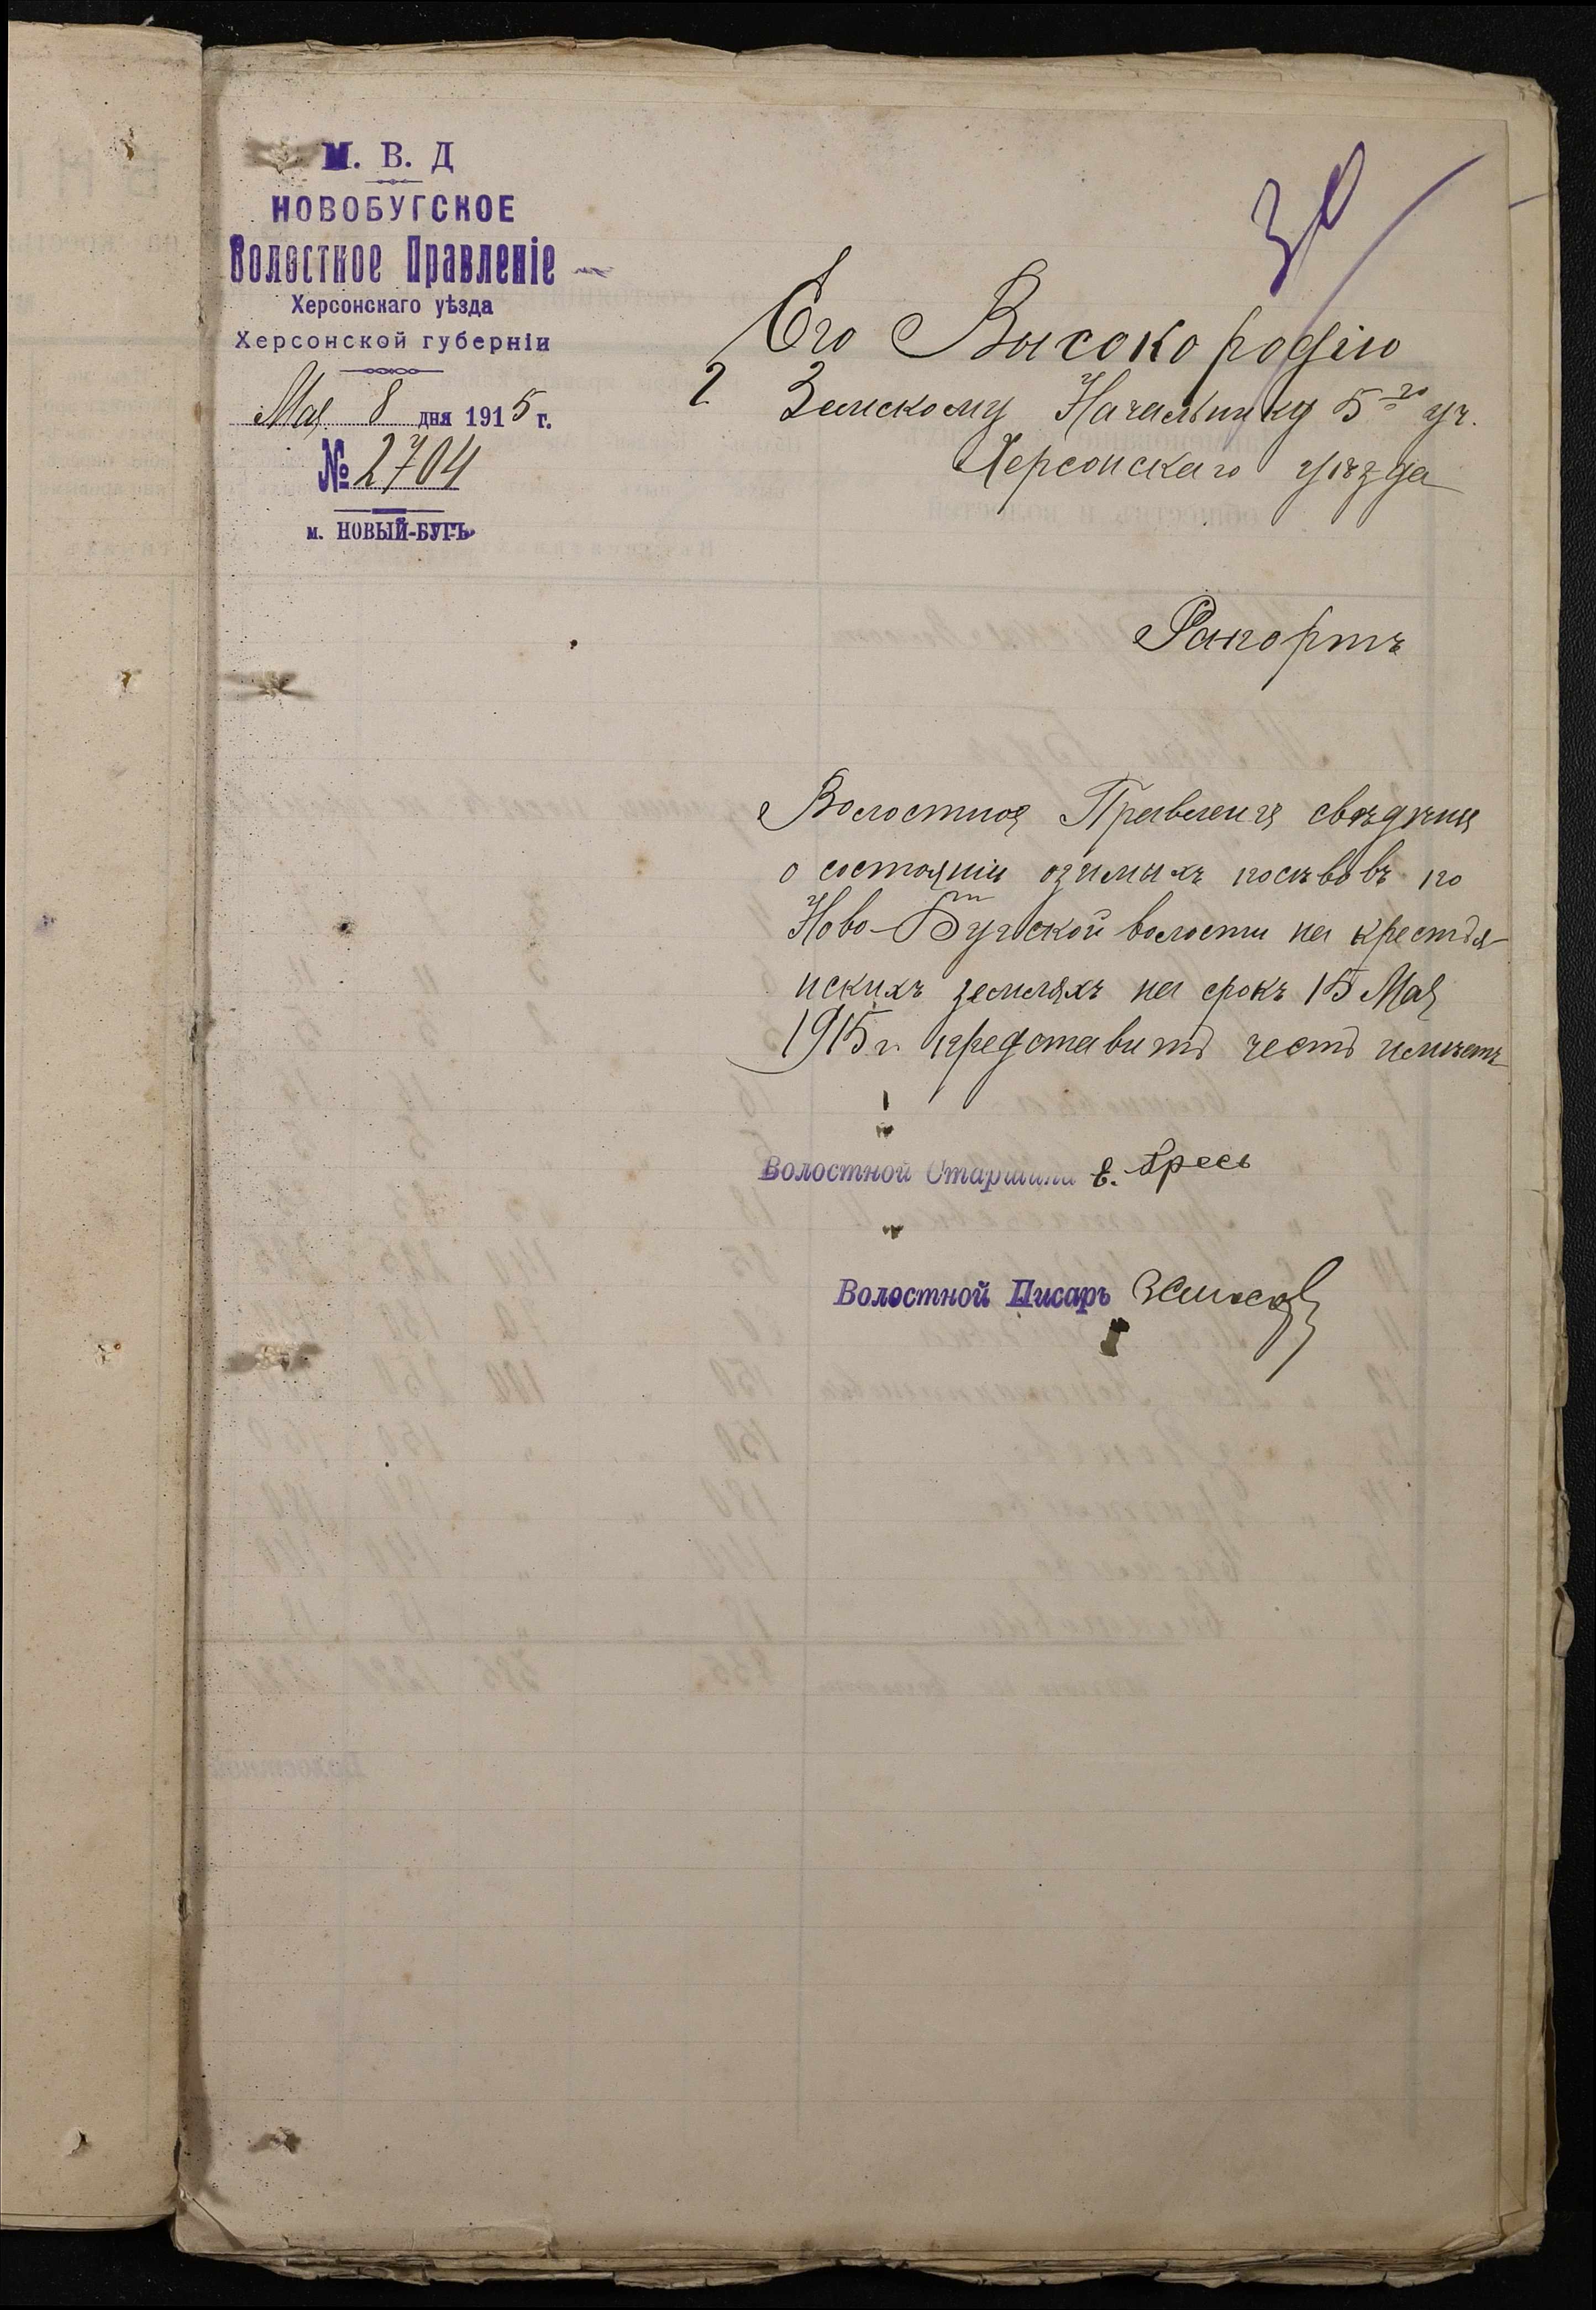 М. В. Д
НОВОБУГСКОЕ
Волостное Правленіе
Херсонскаго уѣзда
Херсонской губерніи
Мая 8 дня 1915 г.
№ 2704
м. НОВЫЙ-БУГЪ
Его Высокородію
Г. Земскому Начальнику 5го уч.
Херсонскаго уѣзда
Рапортъ
Волостное Правленіе свѣдѣнія
о состояніи озимыхъ посѣвовъ по
Ново-Бугской волости на крестья-
нскихъ земляхъ на срокъ 15 Мая
1915 г. представить честь имѣетъ
Волостной Старшина
Волостной Писарь